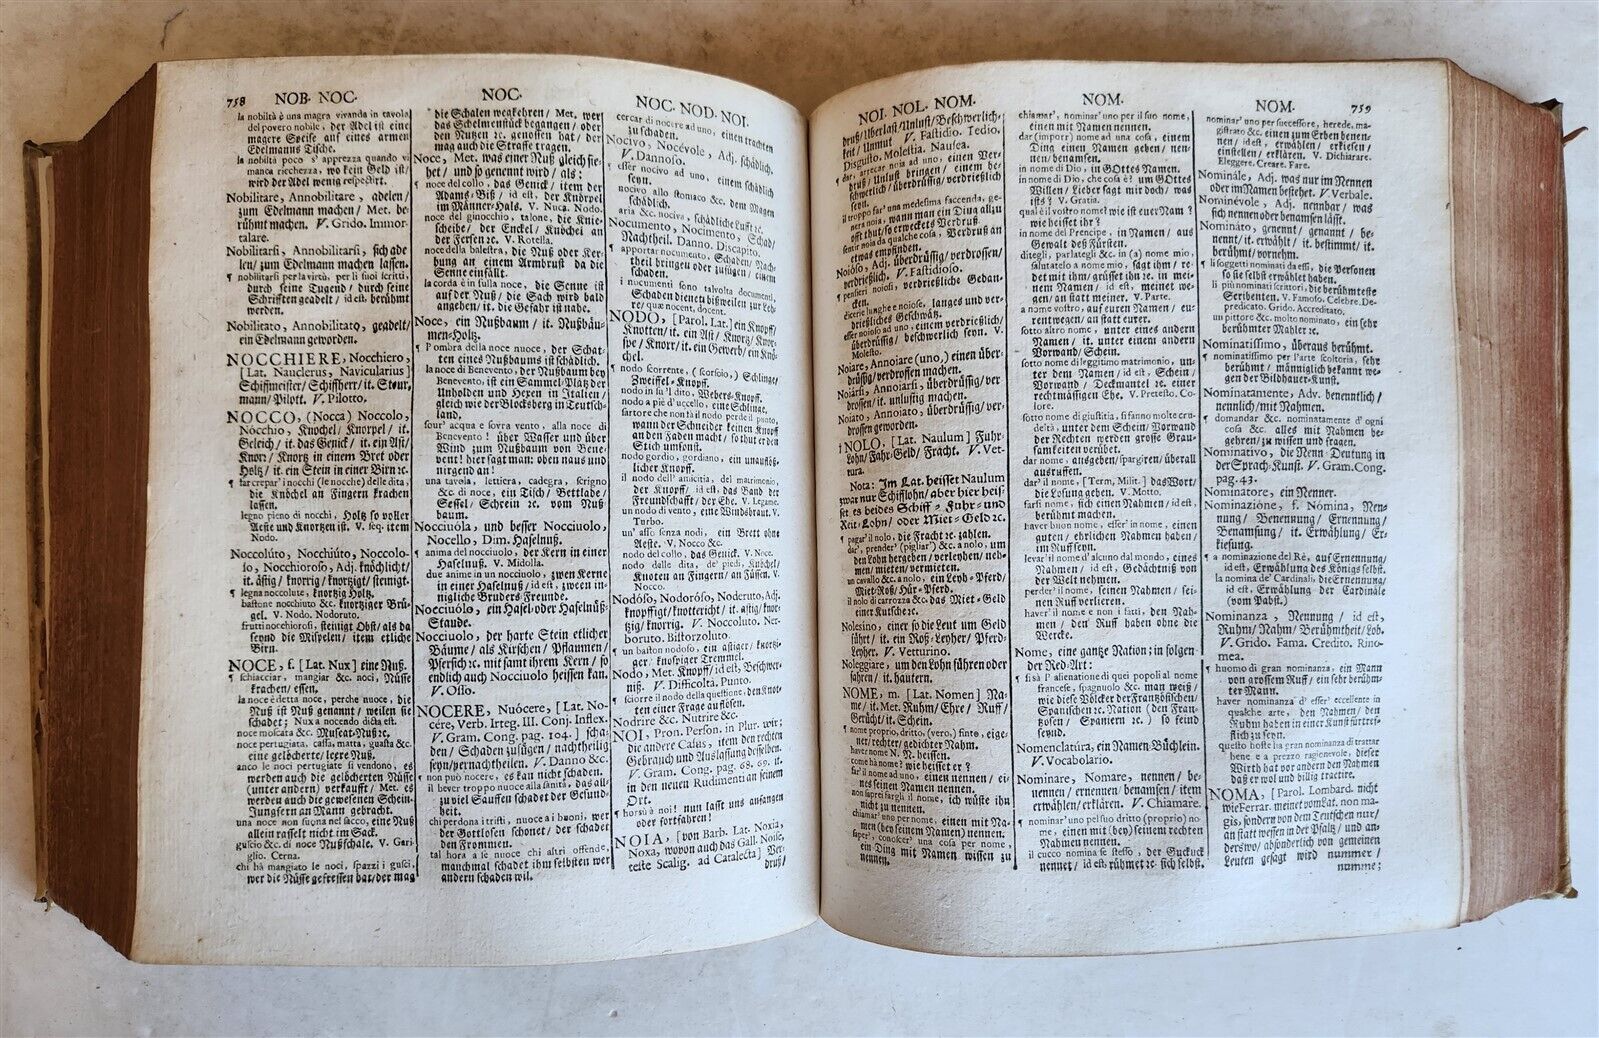 758 NOB. NOC.
la nobiltà è una magra vivanda in tavola
del povero nobile, der Adel ist eine
magere Speise auf eines armen
Edelmanns Tische.
la nobiltà poco s' apprezza quando vi
manca ricchezza, wo kein Geld ist/
wird der Adel wenig respectirt.
Nobilitare, Annobilitare, adelen/
zum Edelmann machen/ Met. be-
rühmt machen. V. Grido. Immor-
talare.
Nobilitarsi, Annobilitarsi, sich ade
len/ zum Edelmann machen lassen.
¶ nobilitarsi per la virtù, per li suoi scritti,
durch seine Tugend/ durch seine
Schriften geadelt/ id est, berühmt
werden.
Nobilitato, Annobilitato, geadelt/
ein Edelmann geworden.
NOCCHIERE, Nocchiero,
[Lat. Nauclerus, Navicularius]
Schiffmeister/ Schiffherr/ it. Steur-
mann/ Pilott. V. Pilotto.
NOCCO, (Nocca) Noccolo,
Nòcchio, Knöchel/ Knorpel/ it.
Geleich/ it. das Genick/ it. ein Ast/
Knorr/ Knortz in einem Bret oder
Holtz/ it. ein Stein in einer Birn ꝛc.
¶ far crepar' i nocchi (le nocche) delle dita,
die Knöchel an Fingern krachen
lassen.
legno pieno di nocchi, Holtz so voller
Aeste und Knortzen ist. V. seq. item
Nodo.
Noccolúto, Nocchiúto, Noccolo-
so, Nocchioroso, Adj. knöchlicht/
it. ästig/ knorrig/ knortzigt/ steinigt.
¶ legna noccolute, knortzig Holtz.
bastone nocchiuto &c. knortziger Brü-
gel. V. Nodo. Nodoruto.
frutti nocchiorosi, steinigt Obst/ als da
seynd die Mispelen/ item etliche
Birn.
NOCE, f. [Lat. Nux] eine Nuß.
¶ schiacciar, mangiar &c. noci, Nüsse
krachen/ essen.
la noce è detta noce, perche nuoce, die
Nuß ist Nuß genannt/ weilen sie
schadet; Nux a nocendo dicta est.
noce moscata &c. Muscat-Nuß ꝛc.
noce pertugiata, cassa, matta, guasta &c.
eine gelöcherte/ leere Nuß.
anco le noci pertugiate si vendono, es
werden auch die gelöcherten Nüsse
(unter andern) verkaufft/ Met. es
werden auch die gewesenen Schein-
Jungfern an Mann gebracht.
una noce non suona nel sacco, eine Nuß
allein rasselt nicht im Sack.
guscio &c. di noce Nußschale. V. Gari-
glio. Cerna.
chi hà mangiato le noci, spazzi i gusci,
wer die Nüsse gefressen hat/ der mag
NOC.
die Schalen wegkehren/ Met. wer
das Schelmenstück begangen/ oder
den Nutzen ꝛc. genossen hat/ der
mag auch die Straffe tragen.
Noce, Met. was einer Nuß gleich sie-
het/ und so genennt wird/ als:
¶ noce del collo, das Genick/ item der
Adams-Biß/ id est, der Knörpel
im Männer-Hals. V. Nuca. Nodo.
noce del ginocchio, talone, die Knie-
scheibe/ der Enckel/ Knöchel an
der Fersen ꝛc. V. Rotella.
noce della balestra, die Nuß oder Ker-
bung an einem Armbrust da die
Senne einfällt.
la corda è in sulla noce, die Senne ist
auf der Nuß/ die Sach wird bald
angehen/ it. die Gefahr ist nahe.
Noce, ein Nußbaum/ it. Nußbäu-
men-Holtz.
¶ l' ombra della noce nuoce, der Schat-
ten eines Nußbaums ist schädlich.
la noce di Benevento, der Nußbaum bey
Benevento, ist ein Sammel-Platz der
Unholden und Hexen in Italien/
gleich wie der Blocksberg in Teutsch-
land.
sour' acqua e sovra vento, alla noce di
Benevento! über Wasser und über
Wind zum Nußbaum von Bene-
vento! hier sagt man: oben naus und
nirgend an!
una tavola, lettiera, cadegra, scrigno
&c di noce, ein Tisch/ Bettlade/
Sessel/ Schrein ꝛc. vom Nuß
baum.
Nocciuóla, und besser Nocciuolo,
Nocello, Dim. Haselnuß.
¶ anima del nocciuolo, der Kern in einer
Haselnuß. V. Midolla.
due anime in un nocciuolo, zween Kerne
in einer Haselnuß/ id est, zween in-
nigliche Bruders-Freunde.
Nocciuólo, ein Hasel-oder Haselnuß-
Staude.
Nocciuolo, der harte Stein etlicher
Bäume/ als Kirschen/ Pflaumen/
Pfersich ꝛc. mit samt ihrem Kern/ so
endlich auch Nocciuolo heissen kan.
V. Osso.
NOCERE, Nuócere, [Lat. No-
cére, Verb. Irreg. III. Conj. Inflex.
V. Gram. Cong. pag. 104.] scha-
den/ Schaden zufügen/ nachtheilig
seyn/ vernachtheilen. V. Danno &c.
¶ non può nocere, es kan nicht schaden.
il bever troppo nuoce alla sanità, das all-
zu viel Sauffen schadet der Gesund-
heit.
chi perdona i tristi, nuoce a i buoni, wer
der Gottlosen schonet/ der schadet
den Frommen.
tal hora a se nuoce chi altri offende,
manchmal schadet ihm selbsten wer
andern schaden wil.
NOC. NOD. NOI.
cercar di nocere ad uno, einen trachten
zu schaden.
Nocivo, Nocévole, Adj. schädlich.
V. Dannoso.
¶ esser nocivo ad uno, einem schädlich
seyn.
nocivo allo stomaco &c. dem Magen
schädlich.
aria &c. nociva, schädliche Lufft ꝛc.
Nocumento, Nocimento, Schad/
Nachtheil. Danno. Discapito.
¶ apportar nocumento, Schaden/ Nach-
theil bringen oder zufügen/ einem
schaden.
i nocumenti sono talvolta documenti,
Schaden dienet bißweilen zur Leh-
re/ quæ nocent, docent.
NODO, [Parol. Lat.] ein Knopff/
Knotten/ it. ein Ast/ Knortz/ Knor-
spe/ Knorr/ it. ein Gewerb/ ein Knö-
chel.
¶ nodo scorrente, (scorsoio,) Schlinge/
Zweiffel-Knopff.
nodo in su 'l dito, Webers-Knopff.
nodo a piè d'uccello, eine Schlinge.
sartore che non fà il nodo perde il punto,
wann der Schneider keinen Knopff
an den Faden macht/ so thut er den
Stich umsonst.
nodo gordio, gordiano, ein unauflöß-
licher Knopff.
il nodo dell' amicitia, del matrimonio,
der Knopff/ id est, das Band der
Freundschafft/ der Ehe. V. Legame.
un nodo di vento, eine Windsbraut. V.
Turbo.
un' asse senza nodi, ein Brett ohne
Aeste. V. Nocco &c.
nodo del collo, das Genick. V. Noce.
nodo delle dita, de' piedi, Knöchel/
Knoten an Fingern/ an Füssen. V.
Nocco.
Nodóso, Nodoróso, Noderuto, Adj.
knopffigt/ knotterícht/ it. astig/ knor-
tzig/ knorrig. V. Noccoluto. Ner-
boruto. Bistorzoluto.
¶ un baston nodoso, ein astiger/ knortzi-
ger/ knopfiger Tremmel.
Nodo, Met. Knopff/ id est, Beschwer-
niß. V. Difficoltà. Punto.
¶ sciorre il nodo della questione, den Knot-
ten einer Frage auflösen.
Nodrire &c. Nutrire &c.
NOI, Pron. Person. in Plur. wir;
die andere Casus, item den rechten
Gebrauch und Auslassung desselben.
V. Gram. Cong. pag. 68. 69. it.
in den neuen Rudimenti an seinem
Ort.
¶ horsù à noi! nun lasst uns anfangen
oder fortfahren!
NOIA, [von Barb. Lat. Noxia,
Noxa, wovon auch das Gall. Noise,
teste Scalig. ad Catalecta] Ver-
druß/
NOI. NOL. NOM.
druß/ Uberlast/ Unlust/ Beschwerlich-
keit/ Unmut V. Fastidio. Tedio.
Disgusto. Molestia. Nausea.
¶ dar, arrecar noia ad uno, einen Ver-
druß/ Unlust bringen/ einem be-
schwerlich/ überdrüssig/ verdrießlich
seyn.
il troppo far' una medesima faccenda, ge-
nera noia, wann man ein Ding allzu
offt thut/ so erweckets Verdruß.
sentir noia da qualche cosa, Verdruß an
etwas empfinden.
Noióso, Adj. überdrüssig/ verdrossen/
verdrießlich. V. Fastidioso.
¶ pensieri noiosi, verdrießliche Gedan-
cken.
dicerie lunghe e noiose, langes und ver-
drießliches Geschwätz.
esser noioso ad uno, einem verdrießlich/
überdrüssig/ beschwerlich seyn. V.
Molesto.
Noiare, Annoiare (uno,) einen über-
drüssig/ verdrossen machen.
Noiarsi, Annoiarsi, überdrüssig/ ver-
drossen/ it. unlustig machen.
Noiato, Annoiato, überdrüssig/ ver-
drossen geworden.
NOLO, [Lat. Naulum] Fuhr-
Lohn/ Fahr-Geld/ Fracht. V. Vet-
tura.
Nota: Im Lat. heisset Naulum
zwar nur Schifflohn/ aber hier heis-
set es beides Schiff- Fuhr- und
Reit-Lohn/ oder Miet-Geld ꝛc.
¶ pagar' il nolo, die Fracht ꝛc. zahlen.
dar', prender' (pigliar') &c. a nolo, um
den Lohn hergeben/ verleyhen/ neh-
men/ mieten/ vermieten.
un cavallo &c. a nolo, ein Leyh-Pferd/
Miet-Roß/ Hür-Pferd.
il nolo di carrozza &c. das Miet-Geld
einer Kutsche ꝛc.
Nolesino, einer so die Leut um Geld
führt/ it. ein Roß-Leyher/ Pferd-
Leyher. V. Vetturino.
Noleggiare, um den Lohn führen oder
fahren/ it. hautern.
NOME, m. [Lat. Nomen] Na-
me/ it. Met. Ruhm/ Ehre/ Ruff/
Gerücht/ it. Schein.
¶ nome proprio, dritto, (vero,) finto, eige-
ner/ rechter/ gedichter Nahm.
haver nome N. N. heissen.
come hà nome? wie heisset er?
far' il nome ad uno, einen nennen/ ei-
nes seinen Nahmen nennen.
non saprei fargli il nome, ich wüste ihn
nicht zu nennen.
chiamar' uno per nome, einen mit Na-
men (bey seinem Namen) nennen.
saper', conoscer' una cosa per nome,
ein Ding mit Namen wissen zu
nennen.
NOM.
chiamar', nominar' uno per il suo nome,
einen mit Namen nennen.
dar (imporr) nome ad una cosa, einem
Ding einen Namen geben/ nen-
nen/ benamsen.
in nome di Dio, in GOttes Namen.
in nome di Dio, che cosa è? um GOttes
Willen/ Lieber sagt mir doch/ was
ists? V. Gratia.
qual è il vostro nome? wie ist euer Nam?
wie heisset ihr?
in nome del Prencipe, in Namen/ aus
Gewalt deß Fürsten.
ditegli, parlategli &c. in (a) nome mio,
salutatelo a nome mio, sagt ihm/ re-
det mit ihm/ grüsset ihn ꝛc. in mei-
nem Namen/ id est, meinet we-
gen/ an statt meiner. V. Parte.
a nome vostro, auf euren Namen/ eu-
rentwegen/ an statt eurer.
sotto altro nome, unter eines andern
Namen/ it. unter einem andern
Vorwand/ Schein.
sotto nome di leggitimo matrimonio, un-
ter dem Namen/ id est, Schein/
Vorwand/ Deckmantel ꝛc. einer
rechtmässigen Ehe. V. Pretesto. Co-
lore.
sotto nome di giustitia, si fanno molte cru-
deltà, unter dem Schein/ Vorwand
der Rechten werden grosse Grau-
samkeiten verübt.
dar nome, ausgeben/ spargiren/ überall
ausruffen.
dar' il nome, [Term. Milit.] das Wort/
die Losung geben. V. Motto.
farsi nome, sich einen Nahmen/ id est,
berühmt machen.
haver buon nome, esser' in nome, einen
guten/ ehrlichen Nahmen haben/
im Ruff seyn.
levar' il nome d'alcuno dal mondo, eines
Nahmen/ id est, Gedächtniß von
der Welt nehmen.
perder' il nome, seinen Nahmen/ sei-
nen Ruff verlieren.
haver' il nome e non i fatti, den Nah-
men/ den Ruff haben ohne die
Wercke.
Nome, eine gantze Nation; in folgen-
der Red-Art:
¶ si sà l' alienatione di quei popoli al nome
francese, spagnuolo &c. man weiß/
wie diese Völcker der Frantzösischen/
Spanischen ꝛc. Nation (den Fran-
tzosen/ Spaniern ꝛc.) so feind
seynd.
Nomenclatúra, ein Namen-Büchlein.
V. Vocabolario.
Nominare, Nomare, nennen/ be-
nennen/ ernennen/ benamsen/ item
erwählen/ erklären. V. Chiamare.
¶ nominar' uno pel suo dritto (proprio) no-
me, einen mit (bey) seinem rechten
Nahmen nennen.
il cucco nomina se stesso, der Guckuck
nennet/ id est, rühmet ꝛc. sich selbst.
NOM. 759
nominar' uno per successore, herede, ma-
gistrato &c. einen zum Erben benen-
nen/ id est, erwählen/ erkiesen/
einstellen/ erklären. V. Dichiarare.
Eleggere. Creare. Fare.
Nominále, Adj. was nur im Nennen
oder im Namen bestehet. V. Verbale.
Nominévole, Adj. nennbar/ was
sich nennen oder benamsen lässt.
Nominato, genennt/ genannt/ be-
nennt/ it. erwählt/ it. bestimmt/ it.
berühmt/ vornehm.
¶ li soggetti nominati da essi, die Personen
so sie selbst erwählet haben.
li più nominati scrittori, die berühmteste
Scribenten. V. Famoso. Celebre. De-
predicato. Grido. Accreditato.
un pittore &c. molto nominato, ein sehr
berühmter Mahler ꝛc.
Nominatissimo, überaus berühmt.
¶ nominatissimo per l'arte scoltoria, sehr
berühmt/ männiglich bekannt we-
gen der Bildhauer-Kunst.
Nominatamente, Adv. benenntlich/
nennlich/ mit Nahmen.
¶ domandar &c. nominatamente d'ogni
cosa &c. alles mit Nahmen be-
gehren/ zu wissen und fragen.
Nominativo, die Nenn-Deutung in
der Sprach-Kunst. V. Gram. Cong.
pag. 43.
Nominatore, ein Nenner.
Nominazióne, f. Nómina, Nen-
nung/ Benennung/ Ernennung/
Benamsung/ it. Erwählung/ Er-
kiesung.
¶ a nominazione del Rè, auf Ernennung/
id est, Erwählung des Königs selbst.
la nomina de' Cardinali, die Ernennung/
id est, Erwählung der Cardinäle
(vom Pabst.)
Nominanza, Nennung/ id est,
Ruhm/ Nahm/ Berühmtheit/ Lob.
V. Grido. Fama. Credito. Rino-
mea.
¶ huomo di gran nominanza, ein Mann
von grossem Ruff/ ein sehr berühm-
ter Mann.
haver nominanza d' esser' eccellente in
qualche arte, den Nahmen/ den
Ruhm haben in einer Kunst fürtref-
flich zu seyn.
questo hoste ha gran nominanza di trattar
bene e a prezzo ragionevole, dieser
Wirth hat vor andern den Nahmen
daß er wol und billig tractire.
NOMA, [Parol. Lombard. nicht
wie Ferrar. meinet vom Lat. non ma-
gis, sondern von dem Teutschen nur/
an statt wessen in der Pfaltz/ und an-
derswo/ absonderlich von gemeinen
Leuten gesagt wird nummer/
numme;